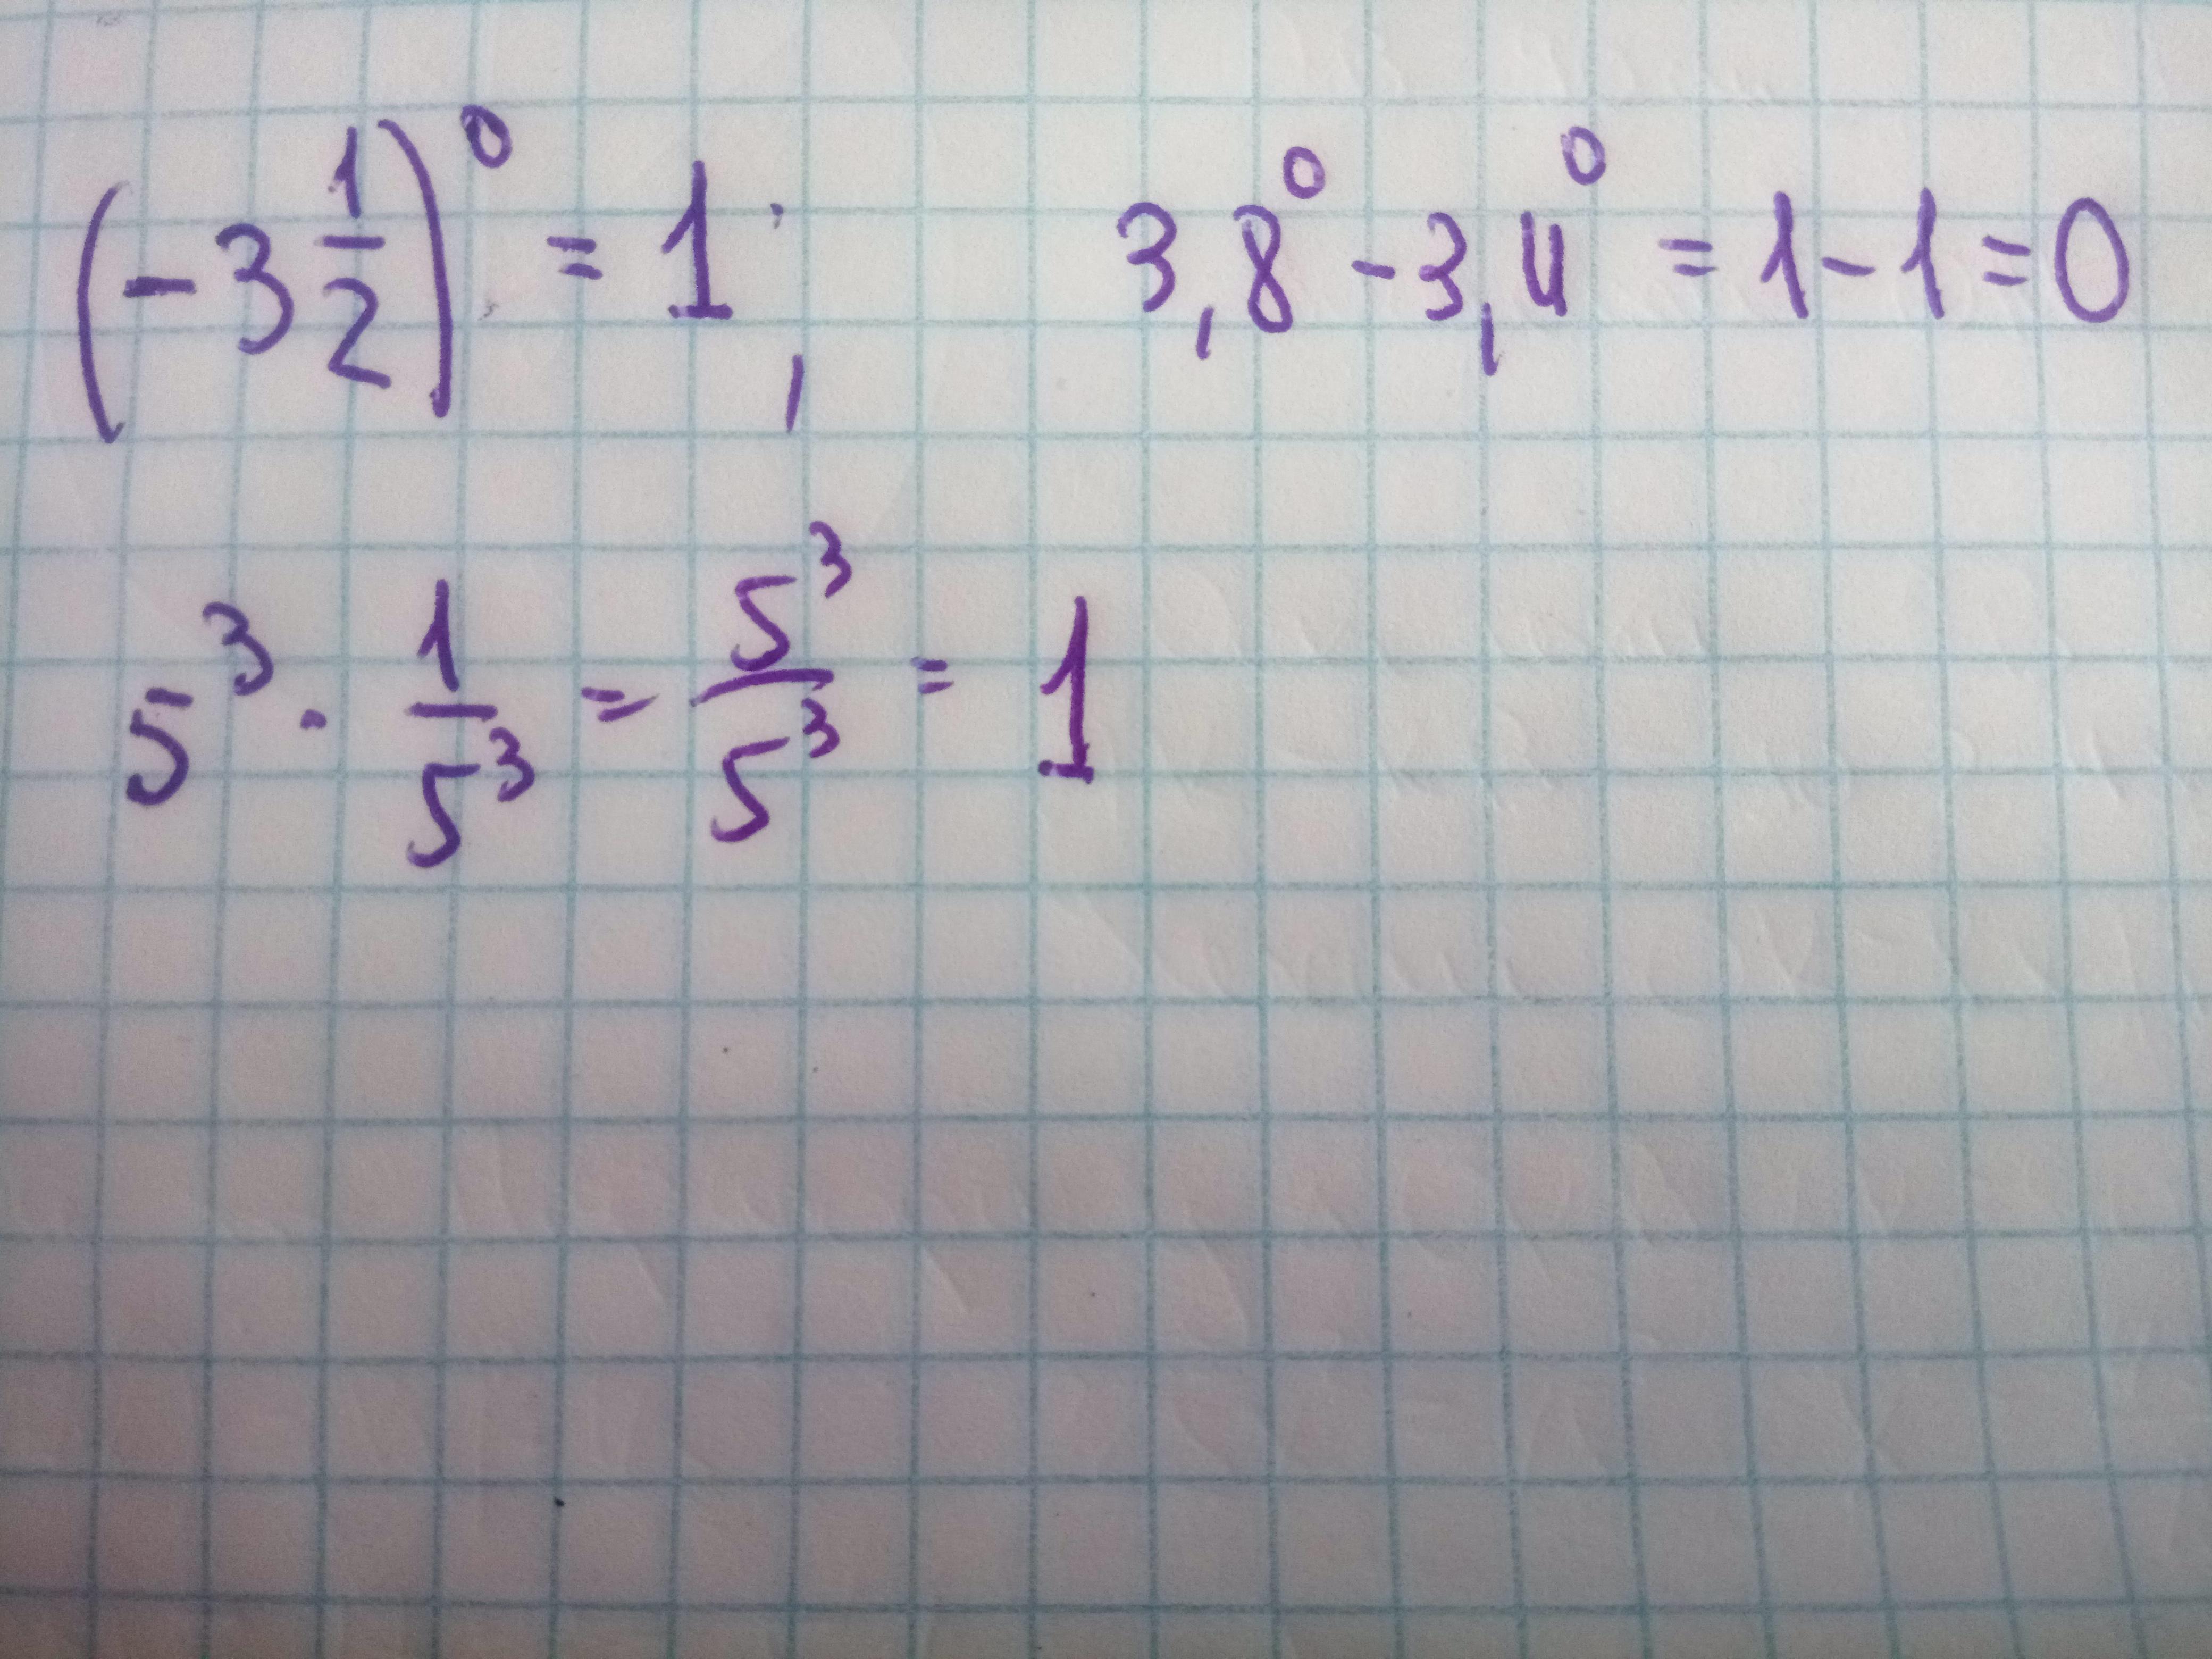 (-3 1/2)⁰ = 1; 3,8⁰ - 3,4⁰ = 1 - 1 = 0
5³ · 1/5³ = 5³/5³ = 1